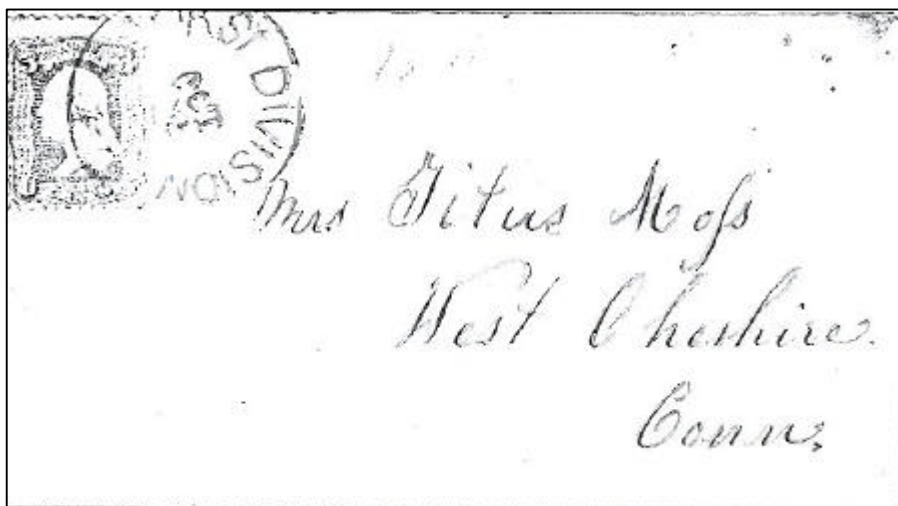 RST DIVISION
OCT
Mrs Titus Moſs
West Cheshire.
Conn.